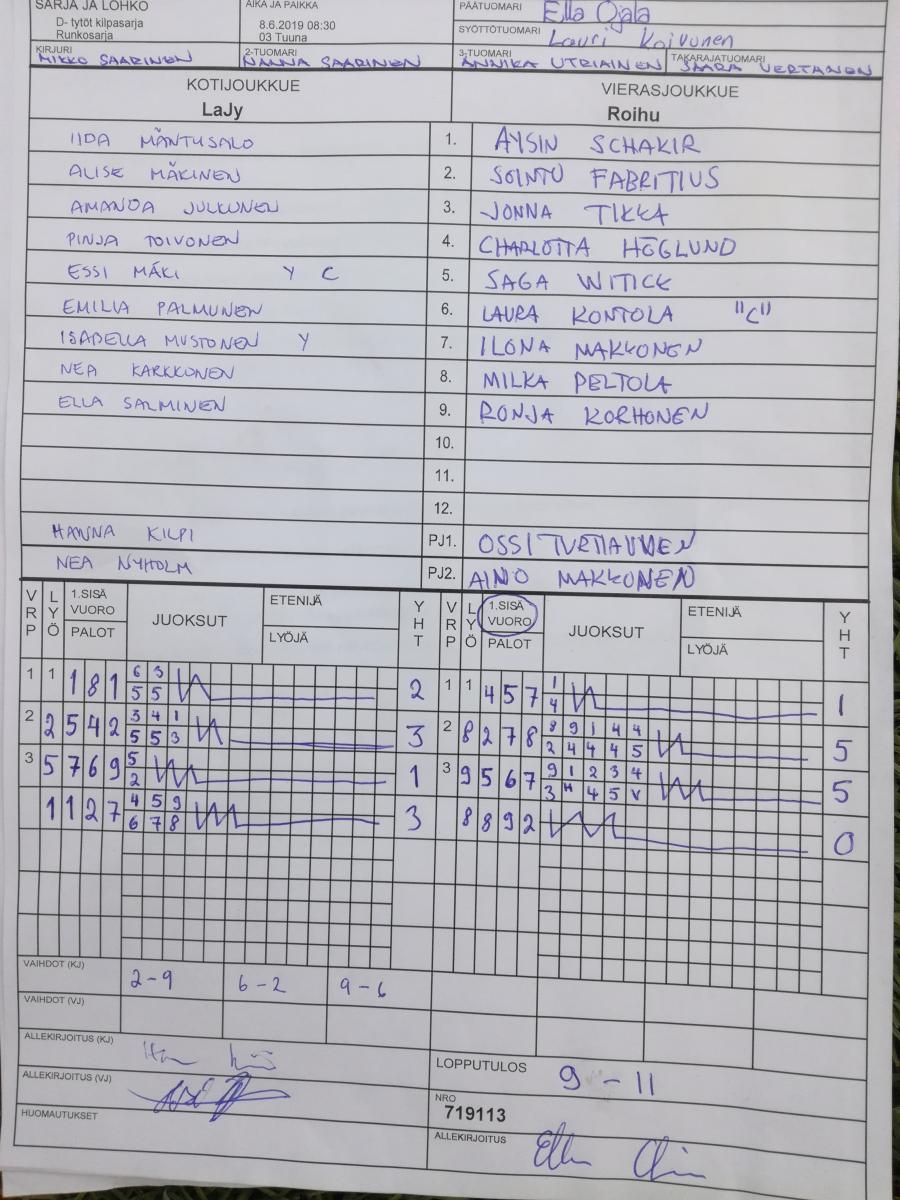 SARJA JA LOHKO
D- tytöt kilpasarja
Runkosarja
AIKA JA PAIKKA
8.6.2019 08:30
03 Tuuna
PÄÄTUOMARI Ella Ojala
SYÖTTÖTUOMARI Lauri Koivunen
KIRJURI MIKKO SAARINEN
2-TUOMARI NANNA SAARINEN
3-TUOMARI ANNIKA UTRIAINEN
TAKARAJATUOMARI SAARA VERTANEN
KOTIJOUKKUE
LaJy
VIERASJOUKKUE
Roihu
IIDA MÄNTUSALO 1. AYSIN SCHAKIR
ALISE MÄKINEN 2. SOINTU FABRITIUS
AMANDA JULKUNEN 3. JONNA TIKKA
PINJA TOIVONEN 4. CHARLOTTA HÖGLUND
ESSI MÄKI Y C 5. SAGA WITICK
EMILIA PALMUNEN 6. LAURA KONTOLA "C"
ISABELLA MUSTONEN Y 7. ILONA MAKKONEN
NEA KARKKONEN 8. MILKA PELTOLA
ELLA SALMINEN 9. RONJA KORHONEN
10.
11.
12.
HANNA KILPI PJ1. OSSI TURTIAINEN
NEA NYHOLM PJ2. AINO MAKKONEN
VRP LYÖ 1.SISÄ VUORO PALOT JUOKSUT ETENIJÄ LYÖJÄ YHT VRP LYÖ 1.SISÄ VUORO PALOT JUOKSUT ETENIJÄ LYÖJÄ YHT
1 1 1 8 1 6 3 2 1 1 4 5 7 1 1
5 5 4
2 2 5 4 2 3 4 1 3 2 8 2 7 8 8 9 1 4 4 5
5 5 3 2 4 4 4 5
3 5 7 6 9 5 1 3 9 5 6 7 9 1 2 3 4 5
2 3 H 4 5 V
1 1 2 7 4 5 9 3 8 8 9 2 0
6 7 8
VAIHDOT (KJ) 2-9 6-2 9-6
VAIHDOT (VJ)
ALLEKIRJOITUS (KJ)
LOPPUTULOS 9 - 11
ALLEKIRJOITUS (VJ)
NRO
719113
HUOMAUTUKSET
ALLEKIRJOITUS